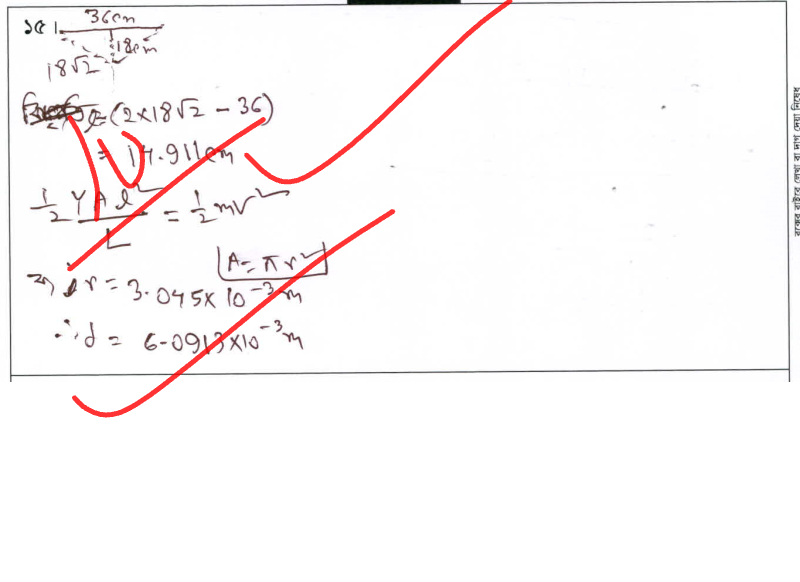 ১৫।
36cm
18cm
18√2
l = (2×18√2 - 36)
= 14.911cm
10
1/2 YAl²/L = 1/2 mv²
A = πr²
⇒ r = 3.045×10⁻³m
∴ d = 6.0913×10⁻³m
বক্সের বাইরে লেখা বা দাগ দেয়া নিষেধ